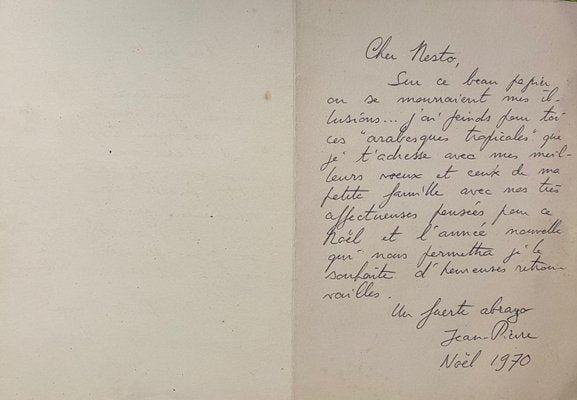 Cher Nesto,
Sur ce beau papier
où se mouraient mes il-
lusions... j'ai peinds pour toi
ces "arabesques tropicales" que
je t'adresse avec mes meil-
leurs voeux et ceux de ma
petite famille avec nos très
affectueuses pensées pour ce
Noël et l'année nouvelle
qui nous permettra je le
souhaite d'heureuses retrou-
vailles.
Un fuerte abrazo
Jean-Pierre
Noël 1970